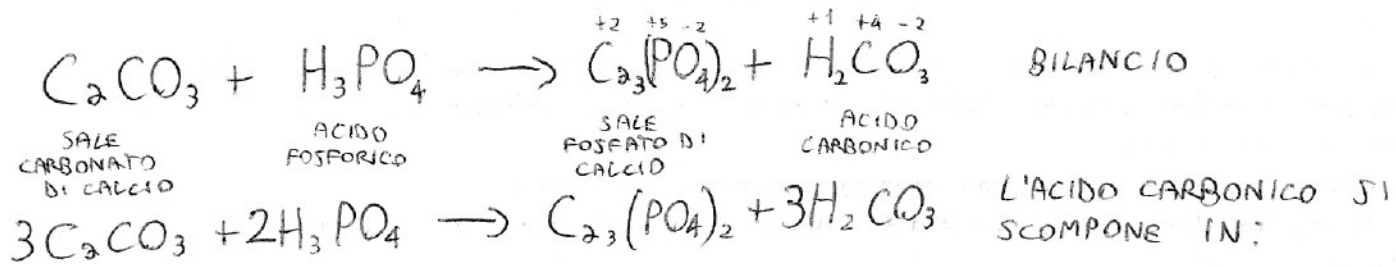 +2 +5 -2 +1 +4 -2
CaCO₃ + H₃PO₄ → Ca₃(PO₄)₂ + H₂CO₃ BILANCIO
SALE CARBONATO DI CALCIO ACIDO FOSFORICO SALE FOSFATO DI CALCIO ACIDO CARBONICO
3CaCO₃ + 2H₃PO₄ → Ca₃(PO₄)₂ + 3H₂CO₃ L'ACIDO CARBONICO SI SCOMPONE IN: